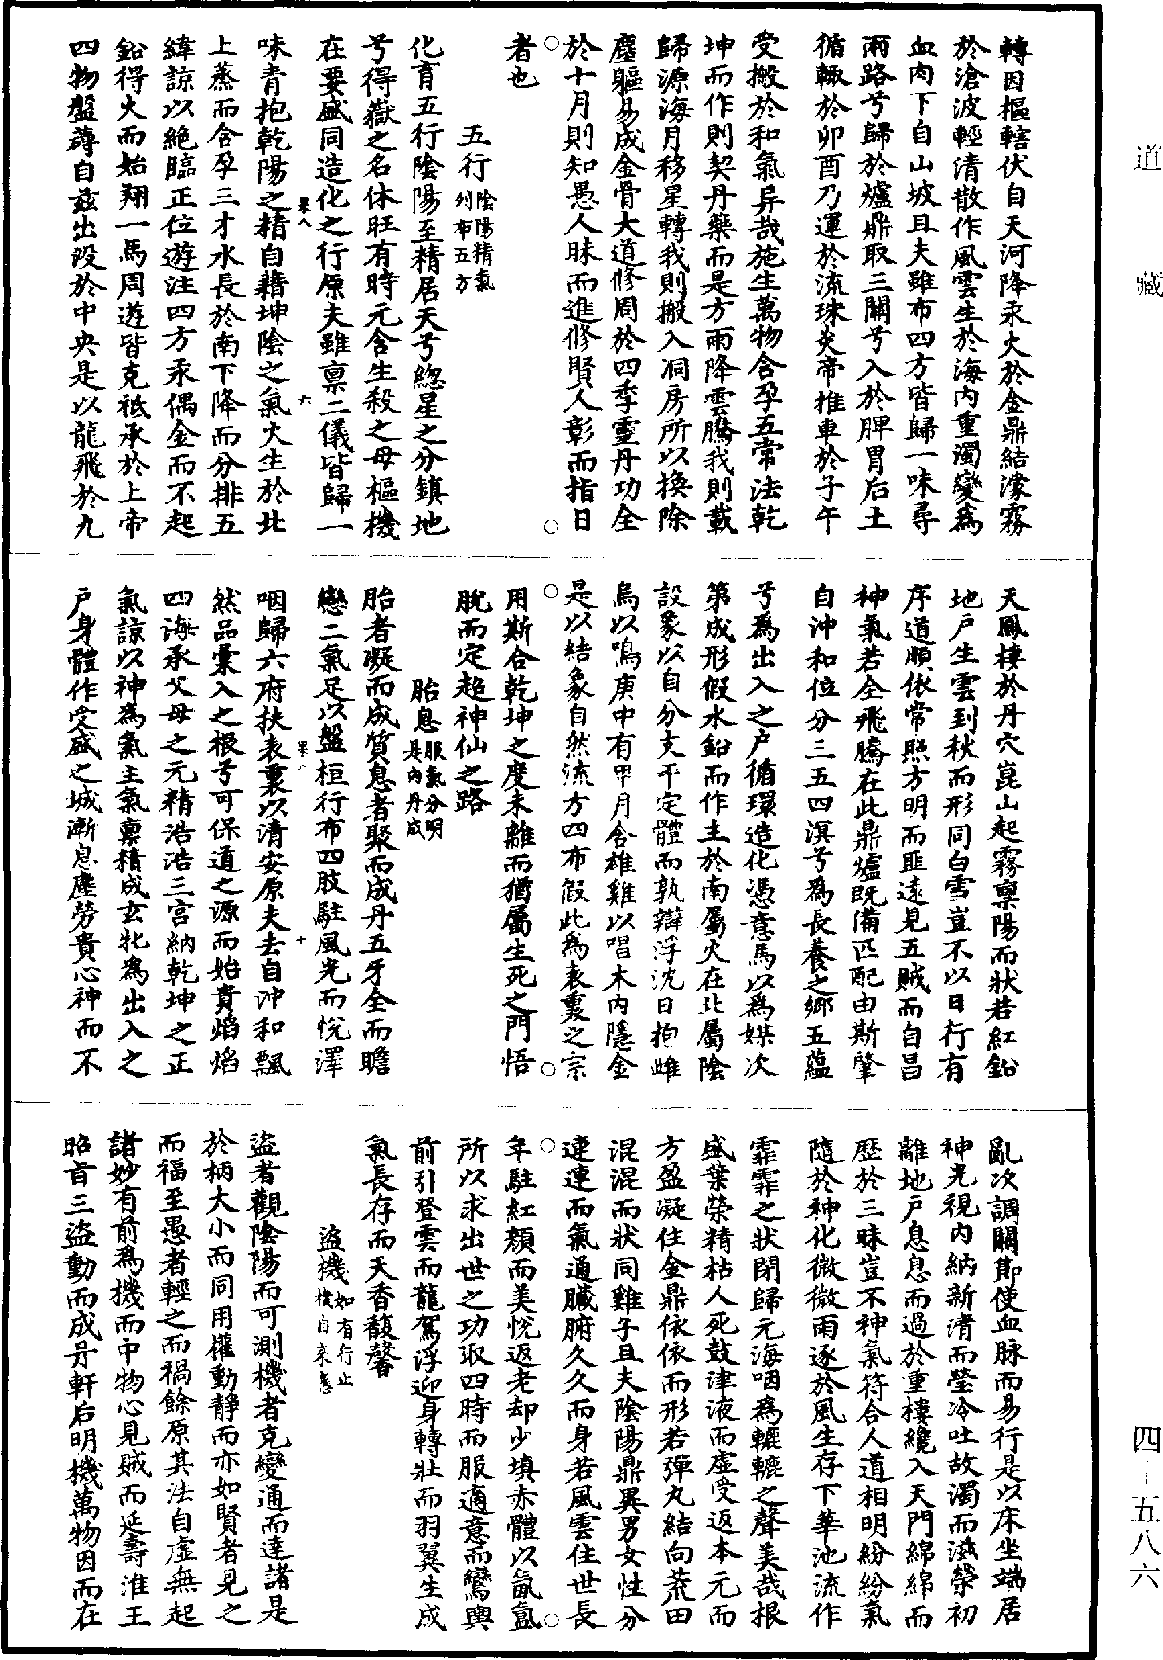 道藏
四-五八六
轉因樞轄伏自天河降汞火於金鼎結濛霧
於滄波輕清散作風雲生於海內重濁變為
血肉下自山坡且夫雖布四方皆歸一味尋
兩路兮歸於爐鼎取三關兮入於脾胃后土
循轍於卯酉乃運於流珠炎帝推車於子午
受搬於和氣异哉施生萬物含孕五常法乾
坤而作則契丹藥而是方雨降雲騰我則載
歸源海月移星轉我則搬入洞房所以換除
塵軀易成金骨大道修周於四季靈丹功全
於十月則知愚人昧而進修賢人彰而指日
者也
五行陰陽精氣列布五方
化育五行陰陽至精居天兮總星之分鎮地
兮得嶽之名休旺有時元含生殺之母樞機
在要盛同造化之行原夫雖稟二儀皆歸一
味青抱乾陽之精自藉坤陰之氣火生於北
上蒸而含孕三才水長於南下降而分排五
緯諒以絶臨正位遊注四方汞偶金而不起
鉛得火而始翔一馬周遊皆克祗承於上帝
四物盤薄自茲出没於中央是以龍飛於九
天鳳棲於丹穴崑山起霧稟陽而狀若紅鉛
地戶生雲到秋而形同白雪豈不以日行有
序道順依常照方明而匪遠見五賊而自昌
神氣若全飛騰在此鼎爐既備匹配由斯肇
自沖和位分二五四溟兮為長養之鄉五蘊
兮為出入之戶循環造化憑意馬以為媒次
第成形假水鉛而作主於南屬火在北屬陰
設象以自分支干定體而孰辯浮沈日抱雌
烏以鳴庚中有甲月含雄雞以唱木內隱金
是以結象自然流方四布假此為表裏之宗
用斯合乾坤之度未離而猶屬生死之門悟
脫而定超神仙之路
胎息服氣分明是內丹成
胎者凝而成質息者聚而成丹五牙全而瞻
戀二氣足以盤桓行布四肢駐風光而悅澤
咽歸六府扶表裏以清安原夫去自沖和飄
然品彙入之根兮可保道之源而始貴焰焰
四海承父母之元精浩浩三宮納乾坤之正
氣諒以神為氣主氣稟精成玄牝為出入之
戶身體作受盛之城漸息塵勞貴心神而不
亂次調關節使血脉而易行是以床坐端居
神光視內納新清而瑩冷吐故濁而滋榮初
離地戶息息而過於重樓纔入天門綿綿而
歷於三昧豈不神氣符合人道相明紛紛氣
隨於神化微微雨逐於風生存下華池流作
霏霏之狀閉歸元海咽為轆轆之聲美哉根
盛葉榮精枯人死鼓津液而虛受返本元而
方盈凝住金鼎依依而形若彈丸結向荒田
混混而狀同雞子且夫陰陽鼎異男女性分
連連而氣通臟腑久久而身若風雲住世長
年駐紅顏而美悅返老却少填赤體以氤氳
所以求出世之功取四時而服適意而鸞輿
前引登雲而龍駕浮迎身轉壯而羽翼生成
氣長存而天香馥馨
盜機如有行止機自來應
盜者觀陰陽而可測機者克變通而達諸是
於柄大小而同用權動靜而亦如賢者見之
而福至愚者輕之而禍餘原其法自虛無起
諸妙有前為機而中物心見賊而延壽淮王
昭首三盜動而成丹軒后明機萬物因而在